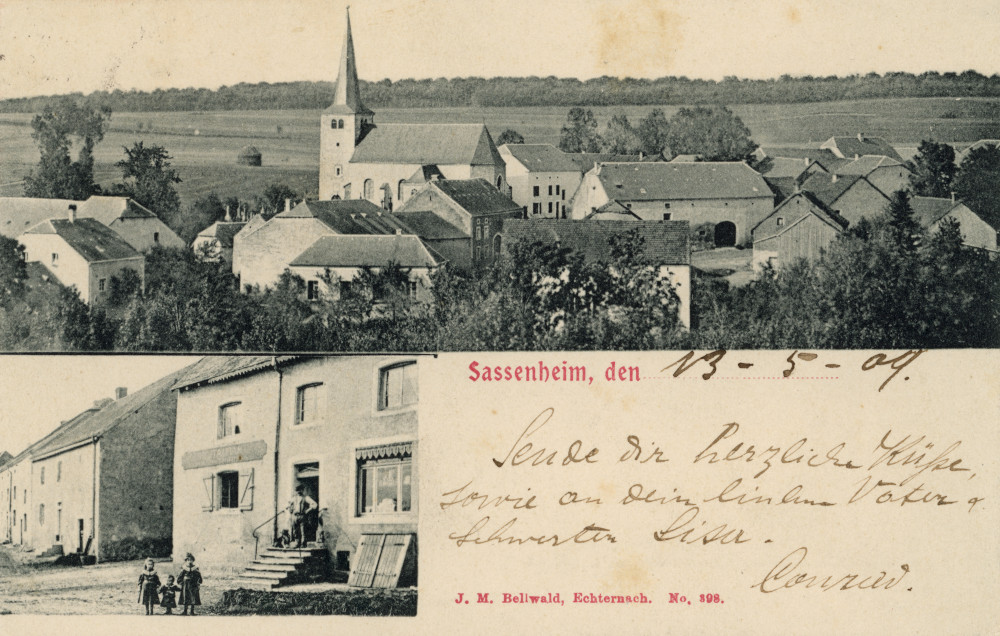 Sassenheim, den 13-5-09.
Sende dir herzliche Küße,
sowie an dein lieben Vater &
Schwester Lisa.
Conrad.
J. M. Bellwald, Echternach. No. 398.